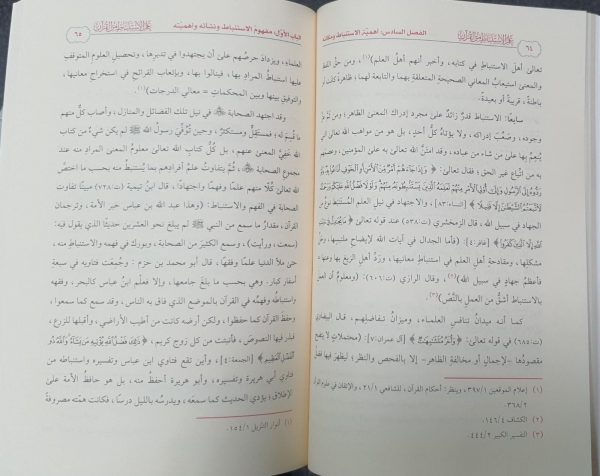 ٦٤
الفصل السادس: أهمية الاستنباط ومكانته
علم الاستنباط من القرآن
تعالى أهل الاستنباط في كتابه، وأخبر أنهم أهل العلم)(١)، ومن حق اللفظ
والمعنى استيعاب المعاني الصحيحة المتعلقة بهما والتابعة لهما، ظاهرة كانت أو
باطنة، قريبة أو بعيدة.
سابعًا: الاستنباط قدر زائد على مجرد إدراك المعنى الظاهر؛ ومن ثم عز
وجوده، وصعب إدراكه، ولا يؤتاه كل أحد، بل هو من مواهب الله تعالى التي
ينعم بها على من شاء من عباده، وقد امتن الله تعالى به على المؤمنين، وعصمهم
به من اتباع غير الحق، فقال تعالى: ﴿وَإِذَا جَاءَهُمْ أَمْرٌ مِنَ الْأَمْنِ أَوِ الْخَوْفِ أَذَاعُوا بِهِ وَلَوْ
رَدُّوهُ إِلَى الرَّسُولِ وَإِلَى أُولِي الْأَمْرِ مِنْهُمْ لَعَلِمَهُ الَّذِينَ يَسْتَنْبِطُونَهُ مِنْهُمْ وَلَوْلَا فَضْلُ اللَّهِ عَلَيْكُمْ وَرَحْمَتُهُ
لَاتَّبَعْتُمُ الشَّيْطَانَ إِلَّا قَلِيلًا﴾ [النساء: ٨٣]، والاجتهاد في تحصيل العلم المستنبط نوع من
الجهاد في سبيل الله، قال الزمخشري (ت:٥٣٨) عند قوله تعالى ﴿مَا يُجَادِلُ فِي آيَاتِ
اللَّهِ إِلَّا الَّذِينَ كَفَرُوا﴾ [غافر:٤]: (فأما الجدال في آيات الله لإيضاح ملتبسها، وحل
مشكلها، ومقادحة أهل العلم في استنباط معانيها، ورد أهل الزيغ بها وعنها؛
فأعظم جهاد في سبيل الله)(٢)، وقال الرازي (ت:٦٠٦): (ومعلوم أن العمل
بالاستنباط أشق من العمل بالنص)(٣).
كما أنه ميدان تنافس العلماء، وميزان تفاضلهم، قال البيضاوي
(ت:٦٨٥) في قوله تعالى: ﴿وَأُخَرُ مُتَشَابِهَاتٌ﴾ [آل عمران:٧]: (محتملات لا يتضح
مقصودها -لإجمال أو مخالفة الظاهر- إلا بالفحص والنظر؛ ليظهر فيها فضل
(١) إعلام الموقعين ٣٩٧/١، وينظر: أحكام القرآن، للشافعي ٢١/١، والإتقان في علوم القرآن
٣٦٨/٢.
(٢) الكشاف ١٤٦/٤.
(٣) التفسير الكبير ٤٤٤/٢.
علم الاستنباط من القرآن
الباب الأول: مفهوم الاستنباط ونشأته وأهميته
٦٥
العلماء، ويزداد حرصهم على أن يجتهدوا في تدبرها، وتحصيل العلوم المتوقف
عليها استنباط المراد بها، فينالوا بها، وبإتعاب القرائح في استخراج معانيها،
والتوفيق بينها وبين المحكمات = معالي الدرجات)(١).
وقد اجتهد الصحابة ﷺ في نيل تلك الفضائل والمنازل، وأصاب كل منهم
ما قسم له؛ فمستقل ومستكثر، وحين توفي رسول الله ﷺ لم يكن شيء من كتاب
الله خفي المعنى عنهم، بل كل كتاب الله تعالى معلوم المعنى المراد منه عند
مجموع الصحابة ﷺ، ثم يتفاوت علم أفرادهم بما يستنبط منه بحسب ما اختص
الله تعالى كلًا منهم علمًا وفهمًا واجتهادًا، قال ابن تيمية (ت:٧٢٨) مبينًا تفاوت
الصحابة في الفهم والاستنباط: (وهذا عبد الله بن عباس حبر الأمة، وترجمان
القرآن، مقدار ما سمع من النبي ﷺ لم يبلغ نحو العشرين حديثًا الذي يقول فيه:
(سمعت، ورأيت)، وسمع الكثير من الصحابة، وبورك في فهمه والاستنباط منه،
حتى ملأ الدنيا علمًا وفقهًا، قال أبو محمد بن حزم: وجمعت فتاويه في سبعة
أسفار كبار، وهي بحسب ما بلغ جامعها، وإلا فعلم ابن عباس كالبحر، وفقهه
واستنباطه وفهمه في القرآن بالموضع الذي فاق به الناس، وقد سمع كما سمعوا،
وحفظ القرآن كما حفظوا، ولكن أرضه كانت من أطيب الأراضي، وأقبلها للزرع،
فبذر فيها النصوص، فأنبتت من كل زوج كريم، ﴿ذَلِكَ فَضْلُ اللَّهِ يُؤْتِيهِ مَنْ يَشَاءُ وَاللَّهُ ذُو
الْفَضْلِ الْعَظِيمِ﴾ [الجمعة:٤]، وأين تقع فتاوى ابن عباس وتفسيره واستنباطه من
فتاوى أبي هريرة وتفسيره، وأبو هريرة أحفظ منه، بل هو حافظ الأمة على
الإطلاق؛ يؤدي الحديث كما سمعه، ويدرسه بالليل درسًا، فكانت همته مصروفة
(١) أنوار التنزيل ١٥٤/١.